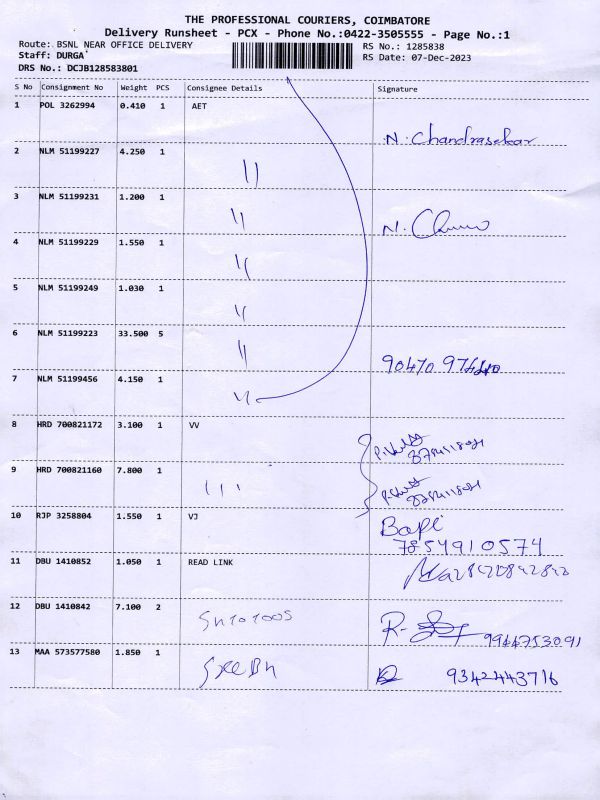 THE PROFESSIONAL COURIERS, COIMBATORE
Delivery Runsheet - PCX - Phone No.:0422-3505555 - Page No.:1
Route: BSNL NEAR OFFICE DELIVERY RS No.: 1285838
Staff: DURGA RS Date: 07-Dec-2023
DRS No.: DCJB128583801
S No Consignment No Weight PCS Consignee Details Signature
1 POL 3262994 0.410 1 AET
N. Chandrasekar
2 NLM 51199227 4.250 1 "
3 NLM 51199231 1.200 1 "
N.
4 NLM 51199229 1.550 1 "
5 NLM 51199249 1.030 1 "
6 NLM 51199223 33.500 5 "
90470
7 NLM 51199456 4.150 1 "
8 HRD 700821172 3.100 1 VV
9 HRD 700821160 7.800 1
10 RJP 3258804 1.550 1 VJ
Bapi
7854910574
11 DBU 1410852 1.050 1 READ LINK
12 DBU 1410842 7.100 2
R-
13 MAA 573577580 1.850 1
9342443716